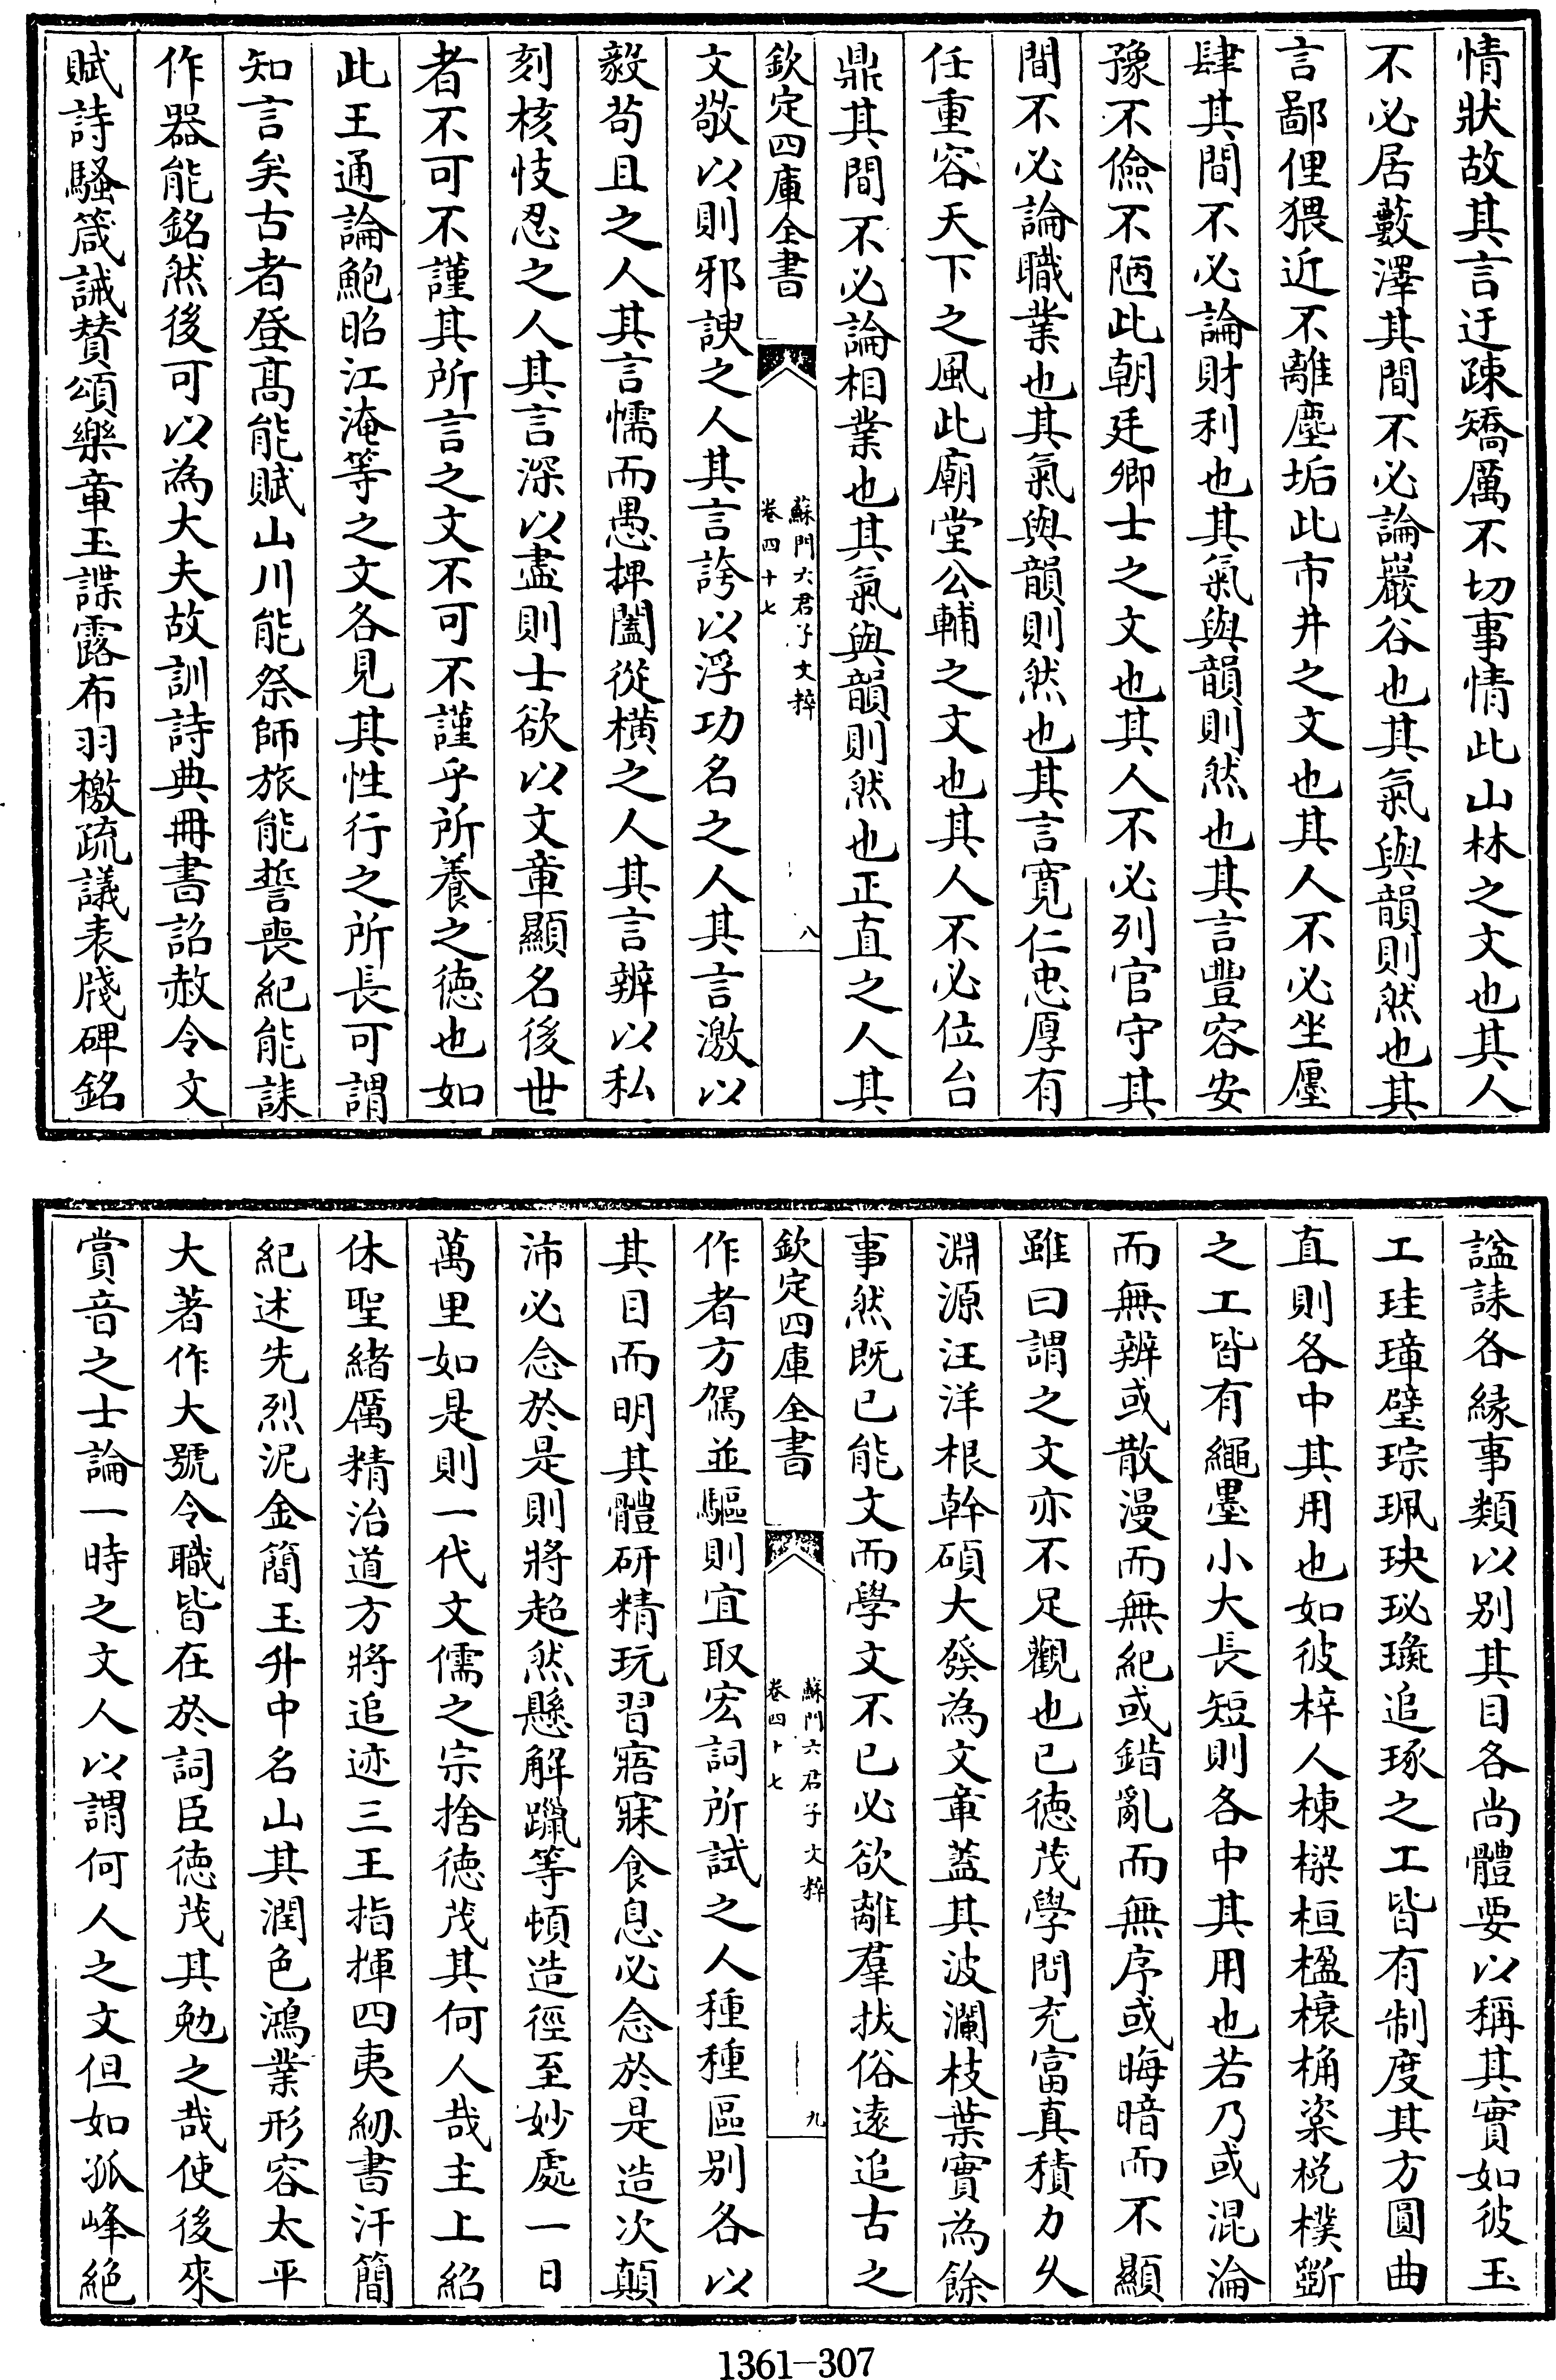 情狀故其言迂疎矯厲不切事情此山林之文也其人
不必居藪澤其間不必論巖谷也其氣與韻則然也其
言鄙俚猥近不離塵垢此市井之文也其人不必坐㕓
肆其間不必論財利也其氣與韻則然也其言豐容安
豫不儉不陋此朝廷卿士之文也其人不必列官守其
間不必論職業也其氣與韻則然也其言寛仁忠厚有
任重容天下之風此廟堂公輔之文也其人不必位台
鼎其間不必論相業也其氣與韻則然也正直之人其
欽定四庫全書
蘇門六君子文粹
卷四十七
八
文敬以則邪諛之人其言誇以浮功名之人其言激以
毅茍且之人其言懦而愚捭闔從横之人其言辨以私
刻核忮忍之人其言深以盡則士欲以文章顯名後世
者不可不謹其所言之文不可不謹乎所養之徳也如
此王通論鮑昭江淹等之文各見其性行之所長可謂
知言矣古者登髙能賦山川能祭師旅能誓喪紀能誄
作器能銘然後可以為大夫故訓詩典冊書詔赦令文
賦詩騷箴誡賛頌樂章玉諜露布羽檄疏議表牋碑銘
諡誄各縁事類以别其目各尚體要以稱其實如彼玉
工珪璋璧琮珮玦珌瑑追琢之工皆有制度其方圓曲
直則各中其用也如彼梓人棟樑桓楹榱桷楶梲樸斵
之工皆有繩墨小大長短則各中其用也若乃或混淪
而無辨或散漫而無紀或錯亂而無序或晦暗而不顯
雖曰謂之文亦不足觀也已徳茂學問充富真積力久
淵源汪洋根幹碩大發為文章蓋其波瀾枝葉實為餘
事然既已能文而學文不已必欲離羣拔俗逺追古之
欽定四庫全書
蘇門六君子文粹
卷四十七
九
作者方駕並驅則宜取宏詞所試之人種種區别各以
其目而明其體研精玩習寤寐食息必念於是造次顛
沛必念於是則將超然懸解躐等頓造徑至妙處一日
萬里如是則一代文儒之宗捨徳茂其何人哉主上紹
休聖緒厲精治道方將追迹三王指揮四夷紬書汗簡
紀述先烈泥金簡玉升中名山其潤色鴻業形容太平
大著作大號令職皆在於詞臣徳茂其勉之哉使後來
賞音之士論一時之文人以謂何人之文但如孤峰絶
1361-307